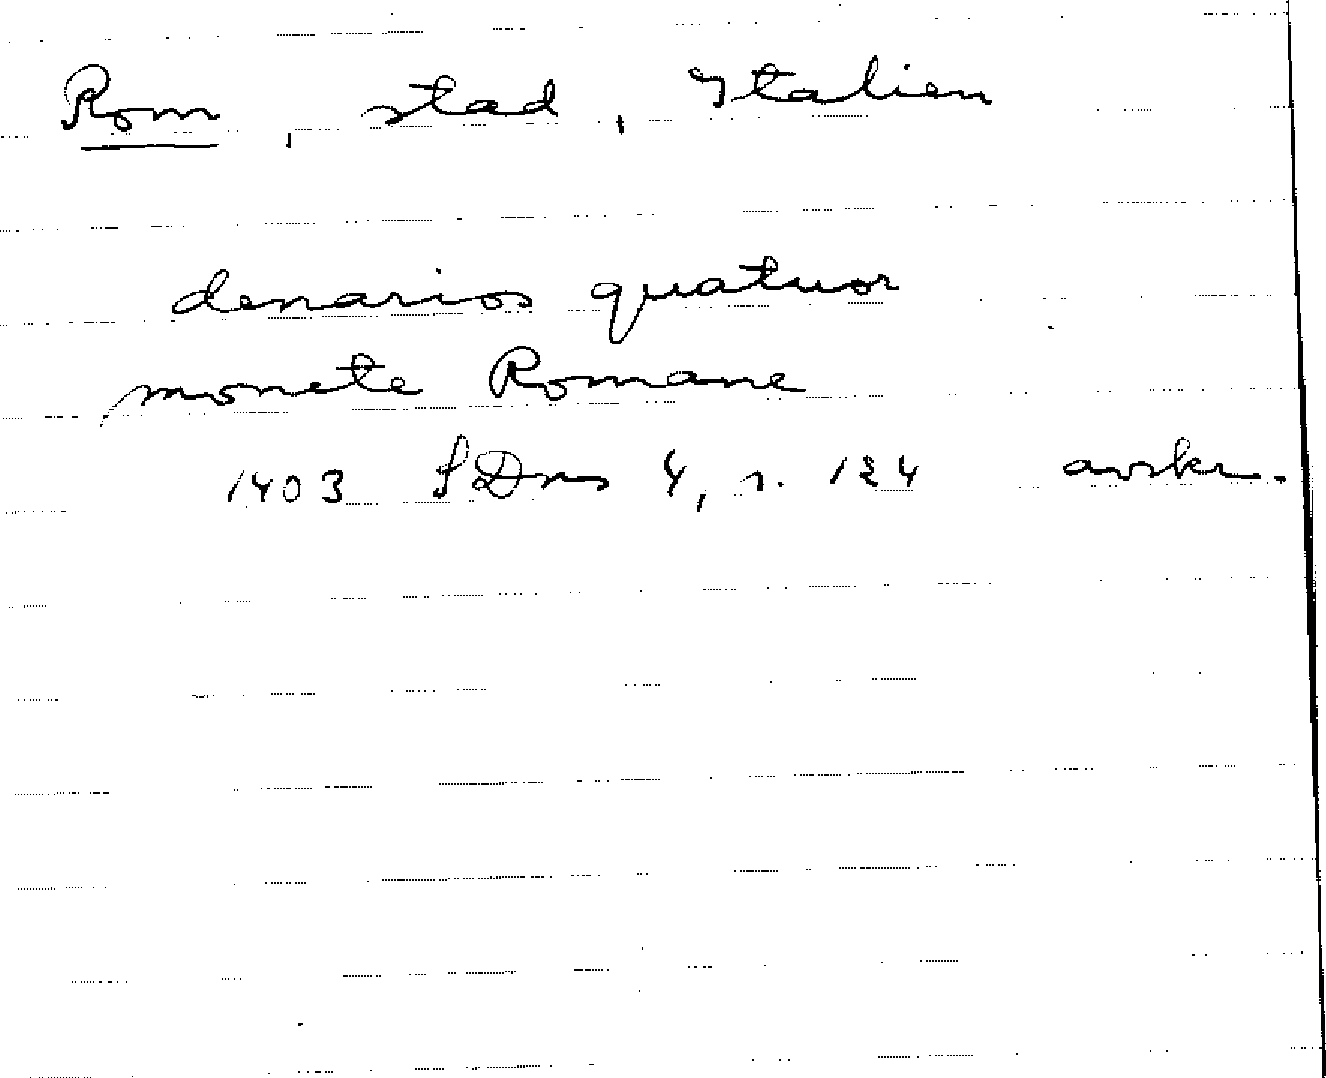 Rom, stad, Italien
denarios quatuor
monete Romane
1403 SDns 4, s. 124 avskr.